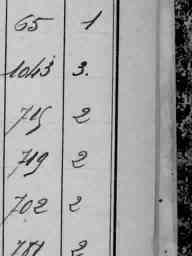 65 1
1043 3.
715 2
719 2
702 2
781 2